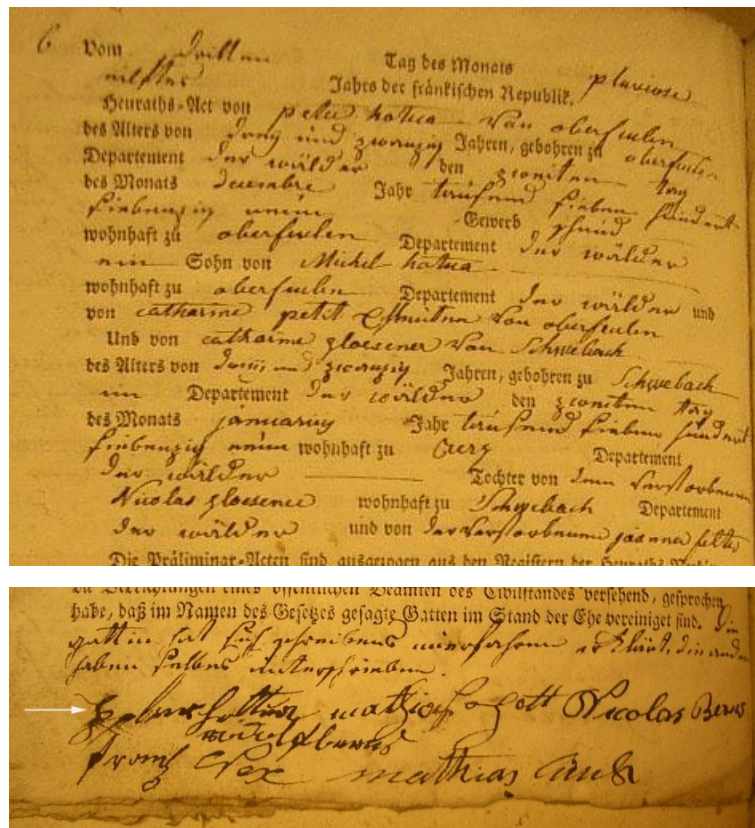 6 Vom dritten Tag des Monats pluviose
eilftes Jahrs der fränkischen Republik.
Heuraths-Act von peter hotua von oberfeulen
des Alters von drey und zwanzig Jahren, gebohren zu oberfeulen
Departement der wälder den zweiten tag
des Monats decembre Jahr tausend sieben hundert
siebenzig neun Gewerb schmid
wohnhaft zu oberfeulen Departement der wälder
ein Sohn von Michel hotua
wohnhaft zu oberfeulen Departement der wälder und
von catharine petit von oberfeulen
Und von catharine gloesener von Schwebach
des Alters von und zwanzig Jahren, gebohren zu Schwebach
im Departement der wälder den zweiten tag
des Monats januarius Jahr tausend sieben hundert
siebenzig neun wohnhaft zu Departement
der wälder Tochter von dem verstorbenen
Nicolas gloesener wohnhaft zu Schwebach Departement
der wälder und von der verstorbenen joanna felten
Die Präliminar-Acten sind ausgezogen aus den Registern der Heuraths
zu Verrichtungen eines öffentlichen Beamten des Civilstandes versehend, gesprochen
habe, daß im Namen des Gesetzes gesagte Gatten im Stand der Ehe vereiniget sind. Die
gattin hat sich schreibens unerfahren erklärt, die andere
haben selbes unterschrieben.
mathias Nicolas Berns
frantz Nex mathias